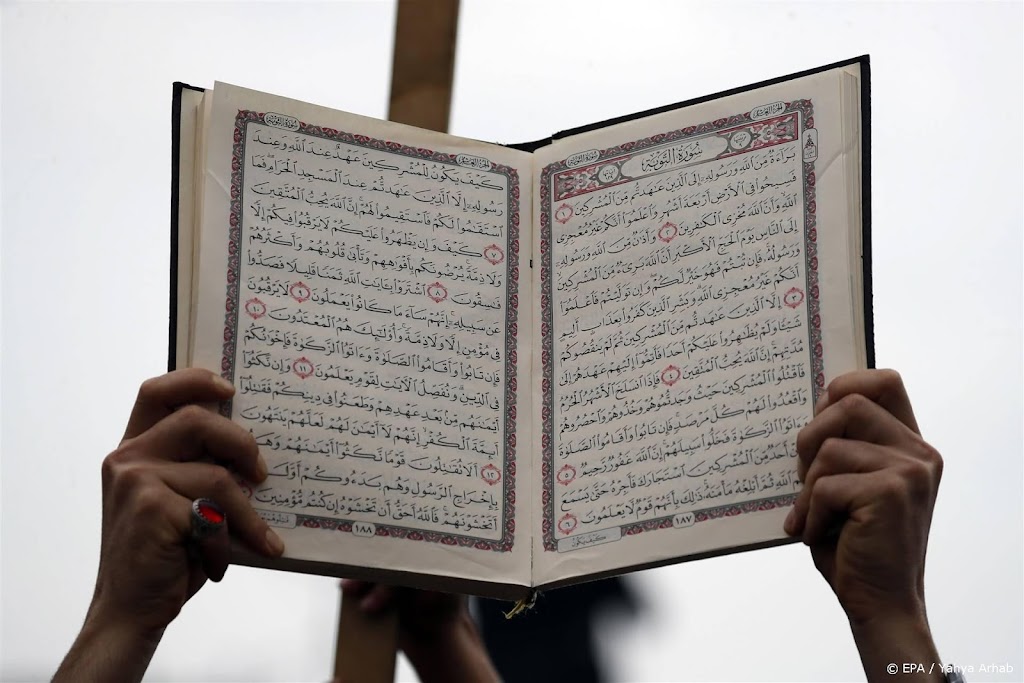 سُورَةُ التَّوْبَةِ
الجُزْءُ العَاشِرُ
سُورَةُ التَّوْبَةِ
بَرَآءَةٌ مِّنَ ٱللَّهِ وَرَسُولِهِۦٓ إِلَى ٱلَّذِينَ عَٰهَدتُّم مِّنَ ٱلْمُشْرِكِينَ ١
فَسِيحُوا۟ فِى ٱلْأَرْضِ أَرْبَعَةَ أَشْهُرٍ وَٱعْلَمُوٓا۟ أَنَّكُمْ غَيْرُ مُعْجِزِى
ٱللَّهِ وَأَنَّ ٱللَّهَ مُخْزِى ٱلْكَٰفِرِينَ ٢ وَأَذَٰنٌ مِّنَ ٱللَّهِ وَرَسُولِهِۦٓ
إِلَى ٱلنَّاسِ يَوْمَ ٱلْحَجِّ ٱلْأَكْبَرِ أَنَّ ٱللَّهَ بَرِىٓءٌ مِّنَ ٱلْمُشْرِكِينَ
وَرَسُولُهُۥ فَإِن تُبْتُمْ فَهُوَ خَيْرٌ لَّكُمْ وَإِن تَوَلَّيْتُمْ فَٱعْلَمُوٓا۟
أَنَّكُمْ غَيْرُ مُعْجِزِى ٱللَّهِ وَبَشِّرِ ٱلَّذِينَ كَفَرُوا۟ بِعَذَابٍ أَلِيمٍ
٣ إِلَّا ٱلَّذِينَ عَٰهَدتُّم مِّنَ ٱلْمُشْرِكِينَ ثُمَّ لَمْ يَنقُصُوكُمْ
شَيْـًٔا وَلَمْ يُظَٰهِرُوا۟ عَلَيْكُمْ أَحَدًا فَأَتِمُّوٓا۟ إِلَيْهِمْ عَهْدَهُمْ إِلَىٰ
مُدَّتِهِمْ إِنَّ ٱللَّهَ يُحِبُّ ٱلْمُتَّقِينَ ٤ فَإِذَا ٱنسَلَخَ ٱلْأَشْهُرُ ٱلْحُرُمُ
فَٱقْتُلُوا۟ ٱلْمُشْرِكِينَ حَيْثُ وَجَدتُّمُوهُمْ وَخُذُوهُمْ وَٱحْصُرُوهُمْ
وَٱقْعُدُوا۟ لَهُمْ كُلَّ مَرْصَدٍ فَإِن تَابُوا۟ وَأَقَامُوا۟ ٱلصَّلَوٰةَ
وَءَاتَوُا۟ ٱلزَّكَوٰةَ فَخَلُّوا۟ سَبِيلَهُمْ إِنَّ ٱللَّهَ غَفُورٌ رَّحِيمٌ ٥
أَحَدٌ مِّنَ ٱلْمُشْرِكِينَ ٱسْتَجَارَكَ فَأَجِرْهُ حَتَّىٰ يَسْمَعَ
ٱللَّهِ ثُمَّ أَبْلِغْهُ مَأْمَنَهُۥ ذَٰلِكَ بِأَنَّهُمْ قَوْمٌ لَّا يَعْلَمُونَ ٦
١٨٧
كَيْفَ يَكُونُ
الجُزْءُ العَاشِرُ
سُورَةُ التَّوْبَةِ
كَيْفَ يَكُونُ لِلْمُشْرِكِينَ عَهْدٌ عِندَ ٱللَّهِ وَعِندَ
رَسُولِهِۦٓ إِلَّا ٱلَّذِينَ عَٰهَدتُّمْ عِندَ ٱلْمَسْجِدِ ٱلْحَرَامِ فَمَا
ٱسْتَقَٰمُوا۟ لَكُمْ فَٱسْتَقِيمُوا۟ لَهُمْ إِنَّ ٱللَّهَ يُحِبُّ ٱلْمُتَّقِينَ
٧ كَيْفَ وَإِن يَظْهَرُوا۟ عَلَيْكُمْ لَا يَرْقُبُوا۟ فِيكُمْ إِلًّا
وَلَا ذِمَّةً يُرْضُونَكُم بِأَفْوَٰهِهِمْ وَتَأْبَىٰ قُلُوبُهُمْ وَأَكْثَرُهُمْ
فَٰسِقُونَ ٨ ٱشْتَرَوْا۟ بِـَٔايَٰتِ ٱللَّهِ ثَمَنًا قَلِيلًا فَصَدُّوا۟
عَن سَبِيلِهِۦٓ إِنَّهُمْ سَآءَ مَا كَانُوا۟ يَعْمَلُونَ ٩ لَا يَرْقُبُونَ
فِى مُؤْمِنٍ إِلًّا وَلَا ذِمَّةً وَأُو۟لَٰٓئِكَ هُمُ ٱلْمُعْتَدُونَ ١٠
فَإِن تَابُوا۟ وَأَقَامُوا۟ ٱلصَّلَوٰةَ وَءَاتَوُا۟ ٱلزَّكَوٰةَ فَإِخْوَٰنُكُمْ
فِى ٱلدِّينِ وَنُفَصِّلُ ٱلْـَٔايَٰتِ لِقَوْمٍ يَعْلَمُونَ ١١ وَإِن نَّكَثُوٓا۟
أَيْمَٰنَهُم مِّنۢ بَعْدِ عَهْدِهِمْ وَطَعَنُوا۟ فِى دِينِكُمْ فَقَٰتِلُوٓا۟
أَئِمَّةَ ٱلْكُفْرِ إِنَّهُمْ لَآ أَيْمَٰنَ لَهُمْ لَعَلَّهُمْ يَنتَهُونَ
١٢ أَلَا تُقَٰتِلُونَ قَوْمًا نَّكَثُوٓا۟ أَيْمَٰنَهُمْ وَهَمُّوا۟
بِإِخْرَاجِ ٱلرَّسُولِ وَهُم بَدَءُوكُمْ أَوَّلَ
أَتَخْشَوْنَهُمْ فَٱللَّهُ أَحَقُّ أَن تَخْشَوْهُ إِن كُنتُم مُّؤْمِنِينَ
١٨٨
© EPA / Yahya Arhab